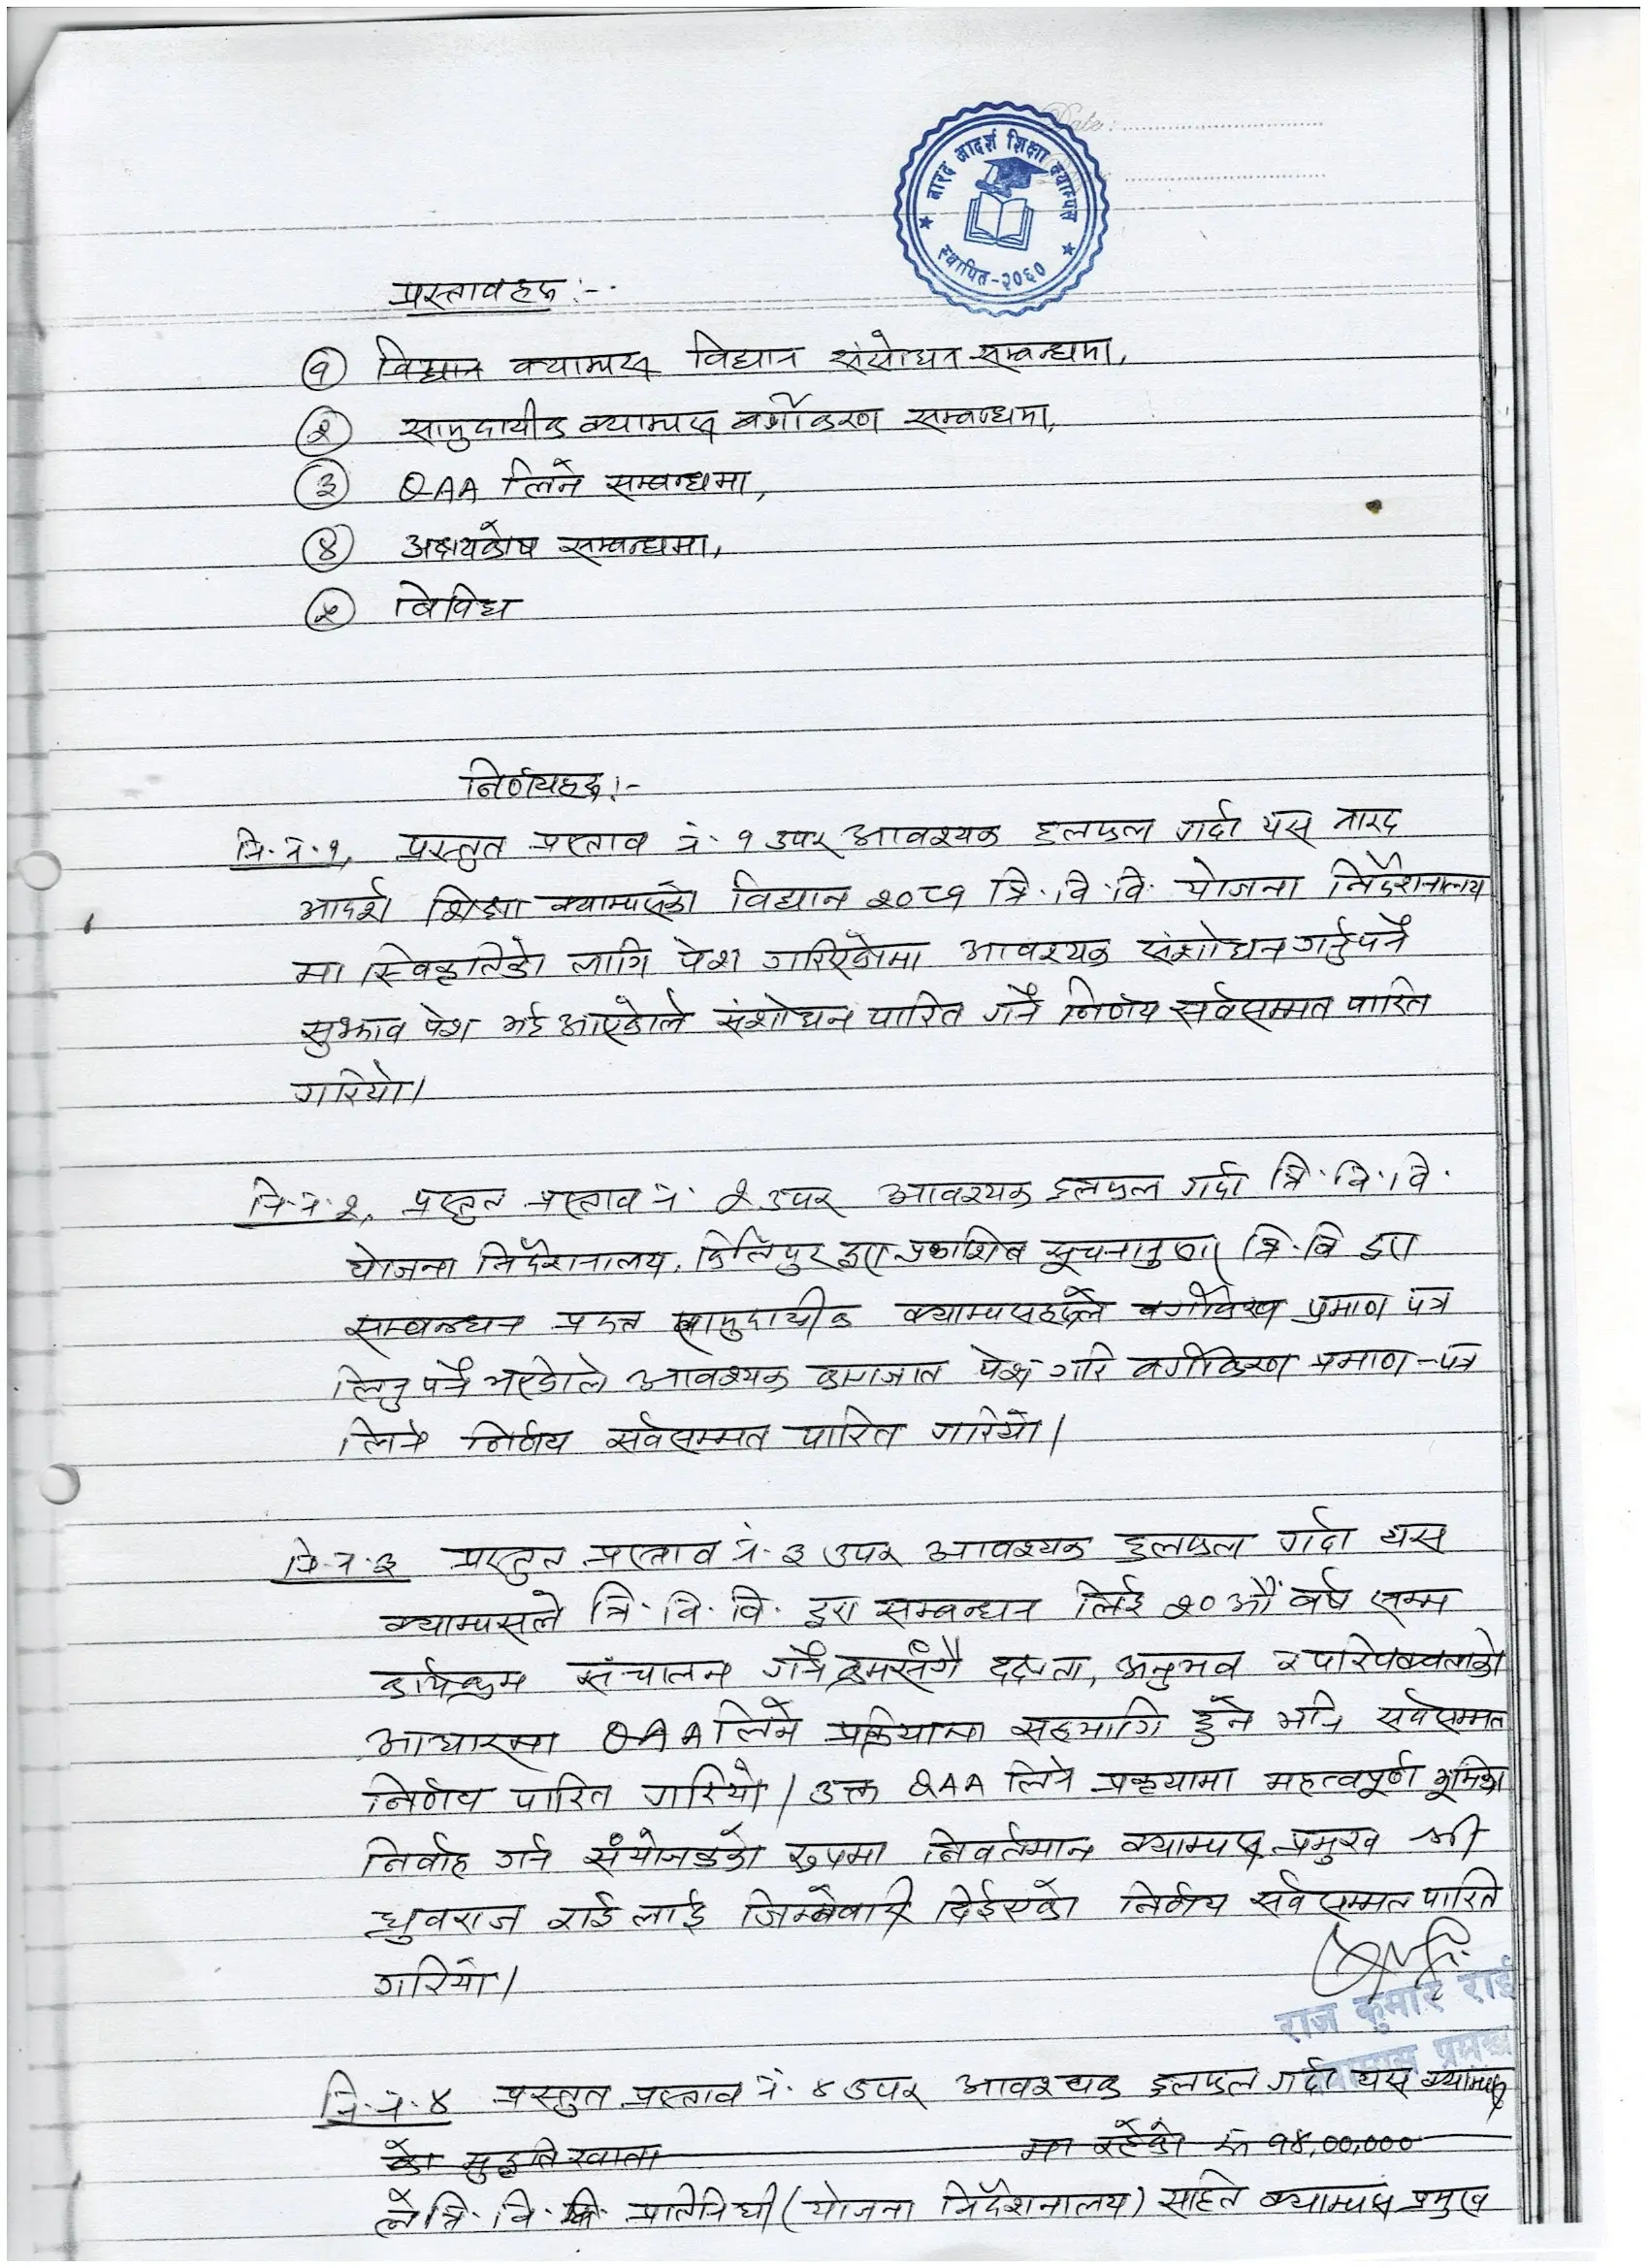 Date :
नारद आदर्श शिक्षा क्याम्पस
स्थापित-२०६०
प्रस्तावहरू :-
१ विधान क्याम्पस विधान संसोधन सम्बन्धमा,
२ सामुदायीक क्याम्पस वर्गीकरण सम्बन्धमा,
३ QAA लिने सम्बन्धमा,
४ अक्षयकोष सम्बन्धमा,
५ विविध
निर्णयहरू :-
नि.नं.१, प्रस्तुत प्रस्ताव नं. १ उपर आवश्यक छलफल गर्दा यस नारद
आदर्श शिक्षा क्याम्पसको विधान २०८१ त्रि.वि.वि. योजना निर्देशनालय
मा स्विकृतिको लागि पेश गरिएकोमा आवश्यक संशोधन गर्नुपर्ने
सुझाव पेश भई आएकोले संशोधन पारित गर्ने निर्णय सर्वसम्मत पारित
गरियो।
नि.नं.२, प्रस्तुत प्रस्ताव नं. २ उपर आवश्यक छलफल गर्दा त्रि.वि.वि.
योजना निर्देशनालय, किर्तिपुर द्वारा प्रकाशित सूचनानुसार त्रि.वि द्वारा
सम्बन्धन प्राप्त सामुदायीक क्याम्पसहरूले वर्गीकरण प्रमाण पत्र
लिनु पर्ने भएकोले आवश्यक कागजात पेश गरि वर्गीकरण प्रमाण-पत्र
लिने निर्णय सर्वसम्मत पारित गरियो।
नि.नं.३ प्रस्तुत प्रस्ताव नं. ३ उपर आवश्यक छलफल गर्दा यस
क्याम्पसले त्रि.वि.वि. द्वारा सम्बन्धन लिई २० औं वर्ष सम्म
कार्यक्रम संचालन गर्ने क्रमसँगै दक्षता, अनुभव र परिपक्वताको
आधारमा QAA लिने प्रक्रियामा सहभागि हुने भनि सर्वसम्मत
निर्णय पारित गरियो। उक्त QAA लिने प्रक्रयामा महत्वपूर्ण भूमिका
निर्वाह गर्न संयोजकको रुपमा निवर्तमान क्याम्पस प्रमुख श्री
ध्रुवराज राई लाई जिम्बेवारी दिईएको निर्णय सर्वसम्मत पारित
गरियो।
राज कुमार राई
क्याम्पस प्रमुख
नि.नं.४ प्रस्तुत प्रस्ताव नं. ४ उपर आवश्यक छलफल गर्दा यस क्याम्पस
को मुद्धति खाता मा रहेको रु १४,००,०००
ले त्रि.वि. प्रतिनिधी (योजना निर्देशनालय) सहित क्याम्पस प्रमुख